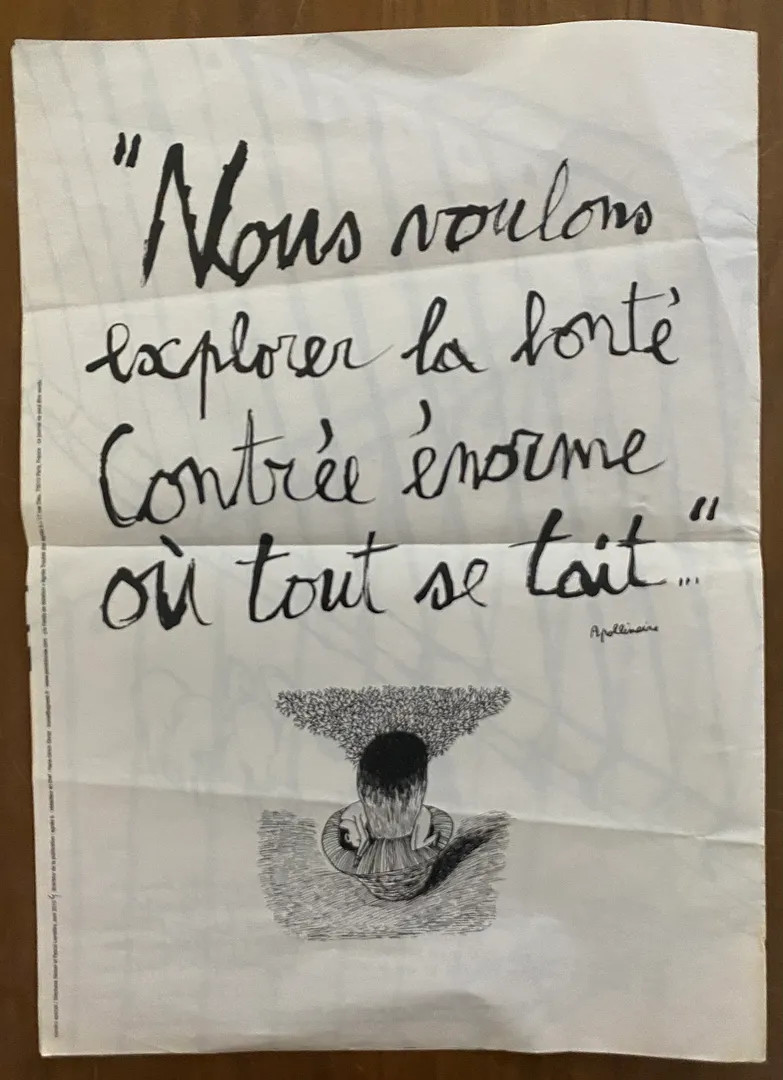 "Nous voulons
explorer la bonté
Contrée énorme
où tout se tait..."
Apollinaire